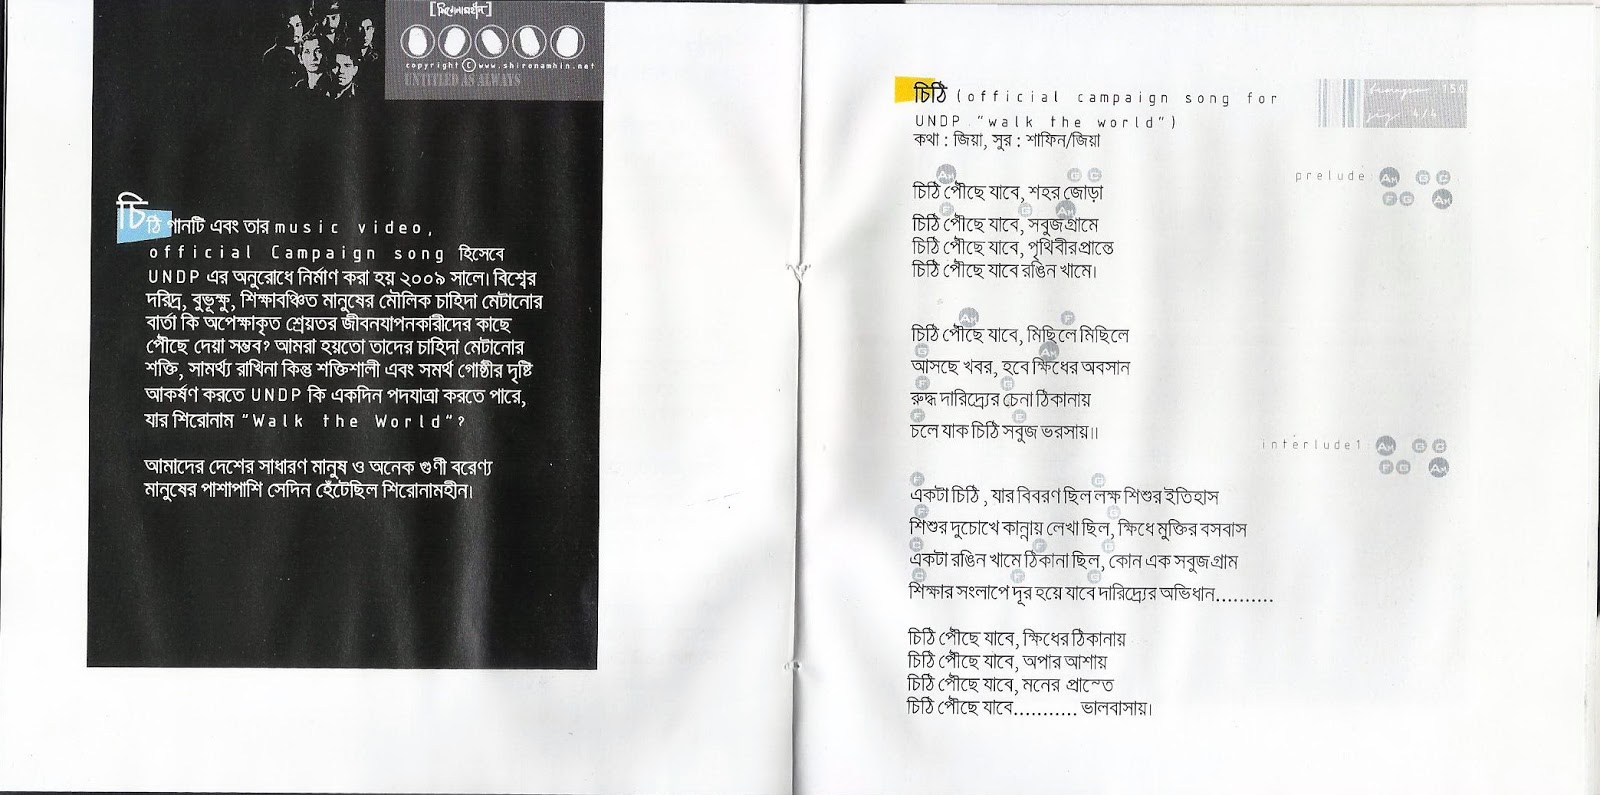 [শিরোনামহীন]
copyright © www.shironamhin.net
UNTITLED AS ALWAYS
চিঠি গানটি এবং তার music video,
official Campaign song হিসেবে
UNDP এর অনুরোধে নির্মাণ করা হয় ২০০৯ সালে। বিশ্বের
দরিদ্র, বুভূক্ষু, শিক্ষাবঞ্চিত মানুষের মৌলিক চাহিদা মেটানোর
বার্তা কি অপেক্ষাকৃত শ্রেয়তর জীবনযাপনকারীদের কাছে
পৌছে দেয়া সম্ভব? আমরা হয়তো তাদের চাহিদা মেটানোর
শক্তি, সামর্থ্য রাখিনা কিন্তু শক্তিশালী এবং সমর্থ গোষ্ঠীর দৃষ্টি
আকর্ষণ করতে UNDP কি একদিন পদযাত্রা করতে পারে,
যার শিরোনাম "Walk the World"?
আমাদের দেশের সাধারণ মানুষ ও অনেক গুণী বরেণ্য
মানুষের পাশাপাশি সেদিন হেঁটেছিল শিরোনামহীন।
চিঠি (official campaign song for
UNDP "walk the world")
কথা : জিয়া, সুর : শাফিন/জিয়া
150
4/4
prelude: Am G C
F G Am
Am G C
চিঠি পৌছে যাবে, শহর জোড়া
F G Am
চিঠি পৌছে যাবে, সবুজ গ্রামে
চিঠি পৌছে যাবে, পৃথিবীর প্রান্তে
চিঠি পৌছে যাবে রঙিন খামে।
Am F
চিঠি পৌছে যাবে, মিছিলে মিছিলে
G Am
আসছে খবর, হবে ক্ষিধের অবসান
F G
রুদ্ধ দারিদ্র্যের চেনা ঠিকানায়
F E
চলে যাক চিঠি সবুজ ভরসায়॥
interlude1: Am G C
F G Am
F G
একটা চিঠি , যার বিবরণ ছিল লক্ষ শিশুর ইতিহাস
F G
শিশুর দুচোখে কান্নায় লেখা ছিল, ক্ষিধে মুক্তির বসবাস
C F G
একটা রঙিন খামে ঠিকানা ছিল, কোন এক সবুজ গ্রাম
C F G
শিক্ষার সংলাপে দূর হয়ে যাবে দারিদ্র্যের অভিধান..........
চিঠি পৌছে যাবে, ক্ষিধের ঠিকানায়
চিঠি পৌছে যাবে, অপার আশায়
চিঠি পৌছে যাবে, মনের প্রান্তে
চিঠি পৌছে যাবে........... ভালবাসায়।